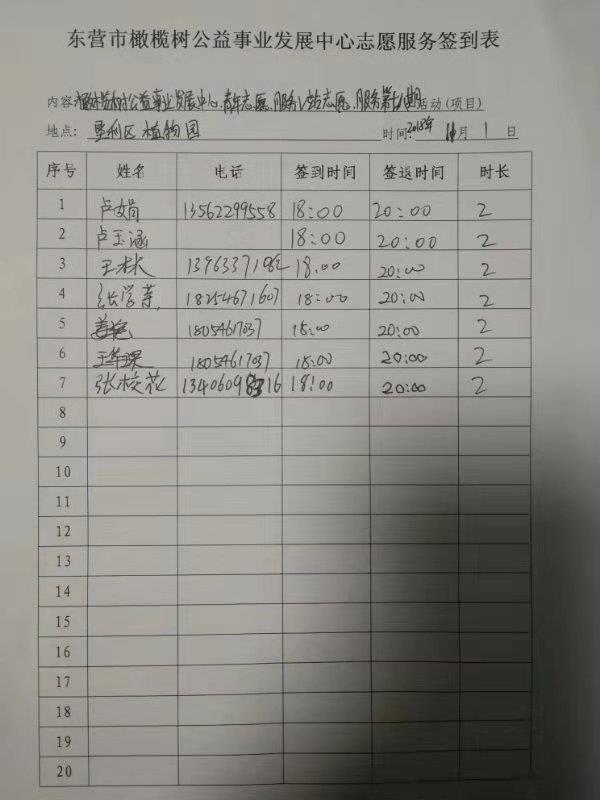 东营市橄榄树公益事业发展中心志愿服务签到表
内容:橄榄树公益事业发展中心青年志愿服务V站志愿服务第 期活动(项目)
地点: 垦利区植物园 时间:2018年 月 1 日
序号 姓名 电话 签到时间 签退时间 时长
1 卢娟 13562299558 18:00 20:00 2
2 卢玉涵 18:00 20:00 2
3 王林 18:00 20:00 2
4 张学菊 18254671607 18:00 20:00 2
5 18054617037 18:00 20:00 2
6 18054617037 18:00 20:00 2
7 张校花 18:00 20:00 2
8
9
10
11
12
13
14
15
16
17
18
19
20